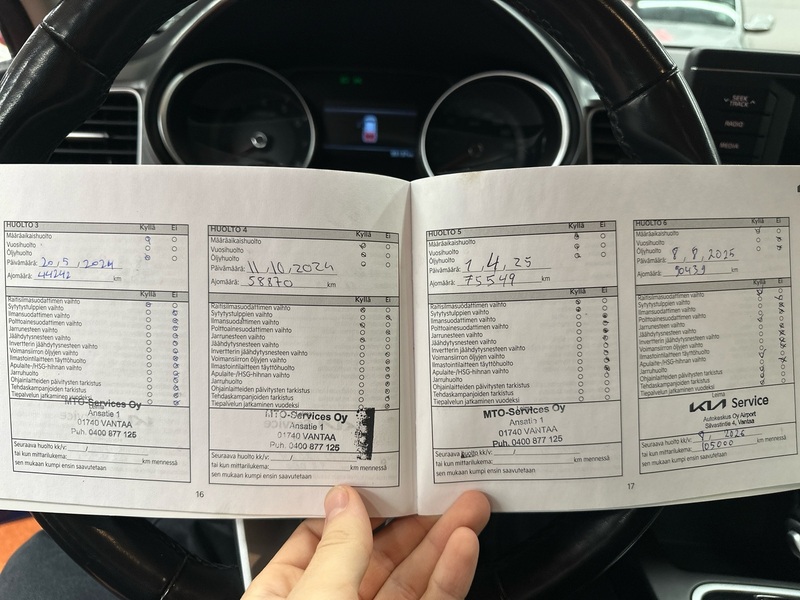 SEEK
TRACK
RADIO
MEDIA
HUOLTO 3
Kyllä Ei
Määräaikaishuolto
Vuosihuolto
Öljyhuolto
Päivämäärä: 20,5,2024
Ajomäärä: 44242 km
Kyllä Ei
Raitisilmasuodattimen vaihto
Sytytystulppien vaihto
Ilmansuodattimen vaihto
Polttoainesuodattimen vaihto
Jarrunesteen vaihto
Jäähdytysnesteen vaihto
Invertterin jäähdytysnesteen vaihto
Voimansiirron öljyjen vaihto
Ilmastointilaitteen täyttöhuolto
Apulaite-/HSG-hihnan vaihto
Jarruhuolto
Ohjainlaitteiden päivitysten tarkistus
Tehdaskampanjoiden tarkistus
Tiepalvelun jatkaminen vuodeksi
MTO-Services Oy
Ansatie 1
01740 VANTAA
Puh. 0400 877 125
Seuraava huolto kk/v: /
tai kun mittarilukema: km mennessä
sen mukaan kumpi ensin saavutetaan
16
HUOLTO 4
Kyllä Ei
Määräaikaishuolto
Vuosihuolto
Öljyhuolto
Päivämäärä: 11,10,2024
Ajomäärä: 58870 km
Kyllä Ei
Raitisilmasuodattimen vaihto
Sytytystulppien vaihto
Ilmansuodattimen vaihto
Polttoainesuodattimen vaihto
Jarrunesteen vaihto
Jäähdytysnesteen vaihto
Invertterin jäähdytysnesteen vaihto
Voimansiirron öljyjen vaihto
Ilmastointilaitteen täyttöhuolto
Apulaite-/HSG-hihnan vaihto
Jarruhuolto
Ohjainlaitteiden päivitysten tarkistus
Tehdaskampanjoiden tarkistus
Tiepalvelun jatkaminen vuodeksi
MTO-Services Oy
Ansatie 1
01740 VANTAA
Puh. 0400 877 125
Seuraava huolto kk/v: /
tai kun mittarilukema: km mennessä
sen mukaan kumpi ensin saavutetaan
HUOLTO 5
Kyllä Ei
Määräaikaishuolto
Vuosihuolto
Öljyhuolto
Päivämäärä: 1,4,25
Ajomäärä: 75549 km
Kyllä Ei
Raitisilmasuodattimen vaihto
Sytytystulppien vaihto
Ilmansuodattimen vaihto
Polttoainesuodattimen vaihto
Jarrunesteen vaihto
Jäähdytysnesteen vaihto
Invertterin jäähdytysnesteen vaihto
Voimansiirron öljyjen vaihto
Ilmastointilaitteen täyttöhuolto
Apulaite-/HSG-hihnan vaihto
Jarruhuolto
Ohjainlaitteiden päivitysten tarkistus
Tehdaskampanjoiden tarkistus
Tiepalvelun jatkaminen vuodeksi
MTO-Services Oy
Ansatie 1
01740 VANTAA
Puh. 0400 877 125
Seuraava huolto kk/v: /
tai kun mittarilukema: km mennessä
sen mukaan kumpi ensin saavutetaan
17
HUOLTO 6
Kyllä Ei
Määräaikaishuolto
Vuosihuolto
Öljyhuolto
Päivämäärä: 8,8,2025
Ajomäärä: 90439 km
Kyllä Ei
Raitisilmasuodattimen vaihto
Sytytystulppien vaihto
Ilmansuodattimen vaihto
Polttoainesuodattimen vaihto
Jarrunesteen vaihto
Jäähdytysnesteen vaihto
Invertterin jäähdytysnesteen vaihto
Voimansiirron öljyjen vaihto
Ilmastointilaitteen täyttöhuolto
Apulaite-/HSG-hihnan vaihto
Jarruhuolto
Ohjainlaitteiden päivitysten tarkistus
Tehdaskampanjoiden tarkistus
Tiepalvelun jatkaminen vuodeksi
Leima
KIA Service
Autokeskus Oy Airport
Silvastintie 4, Vantaa
Seuraava huolto kk/v: 8, 2026
tai kun mittarilukema: 105000 km mennessä
sen mukaan kumpi ensin saavutetaan